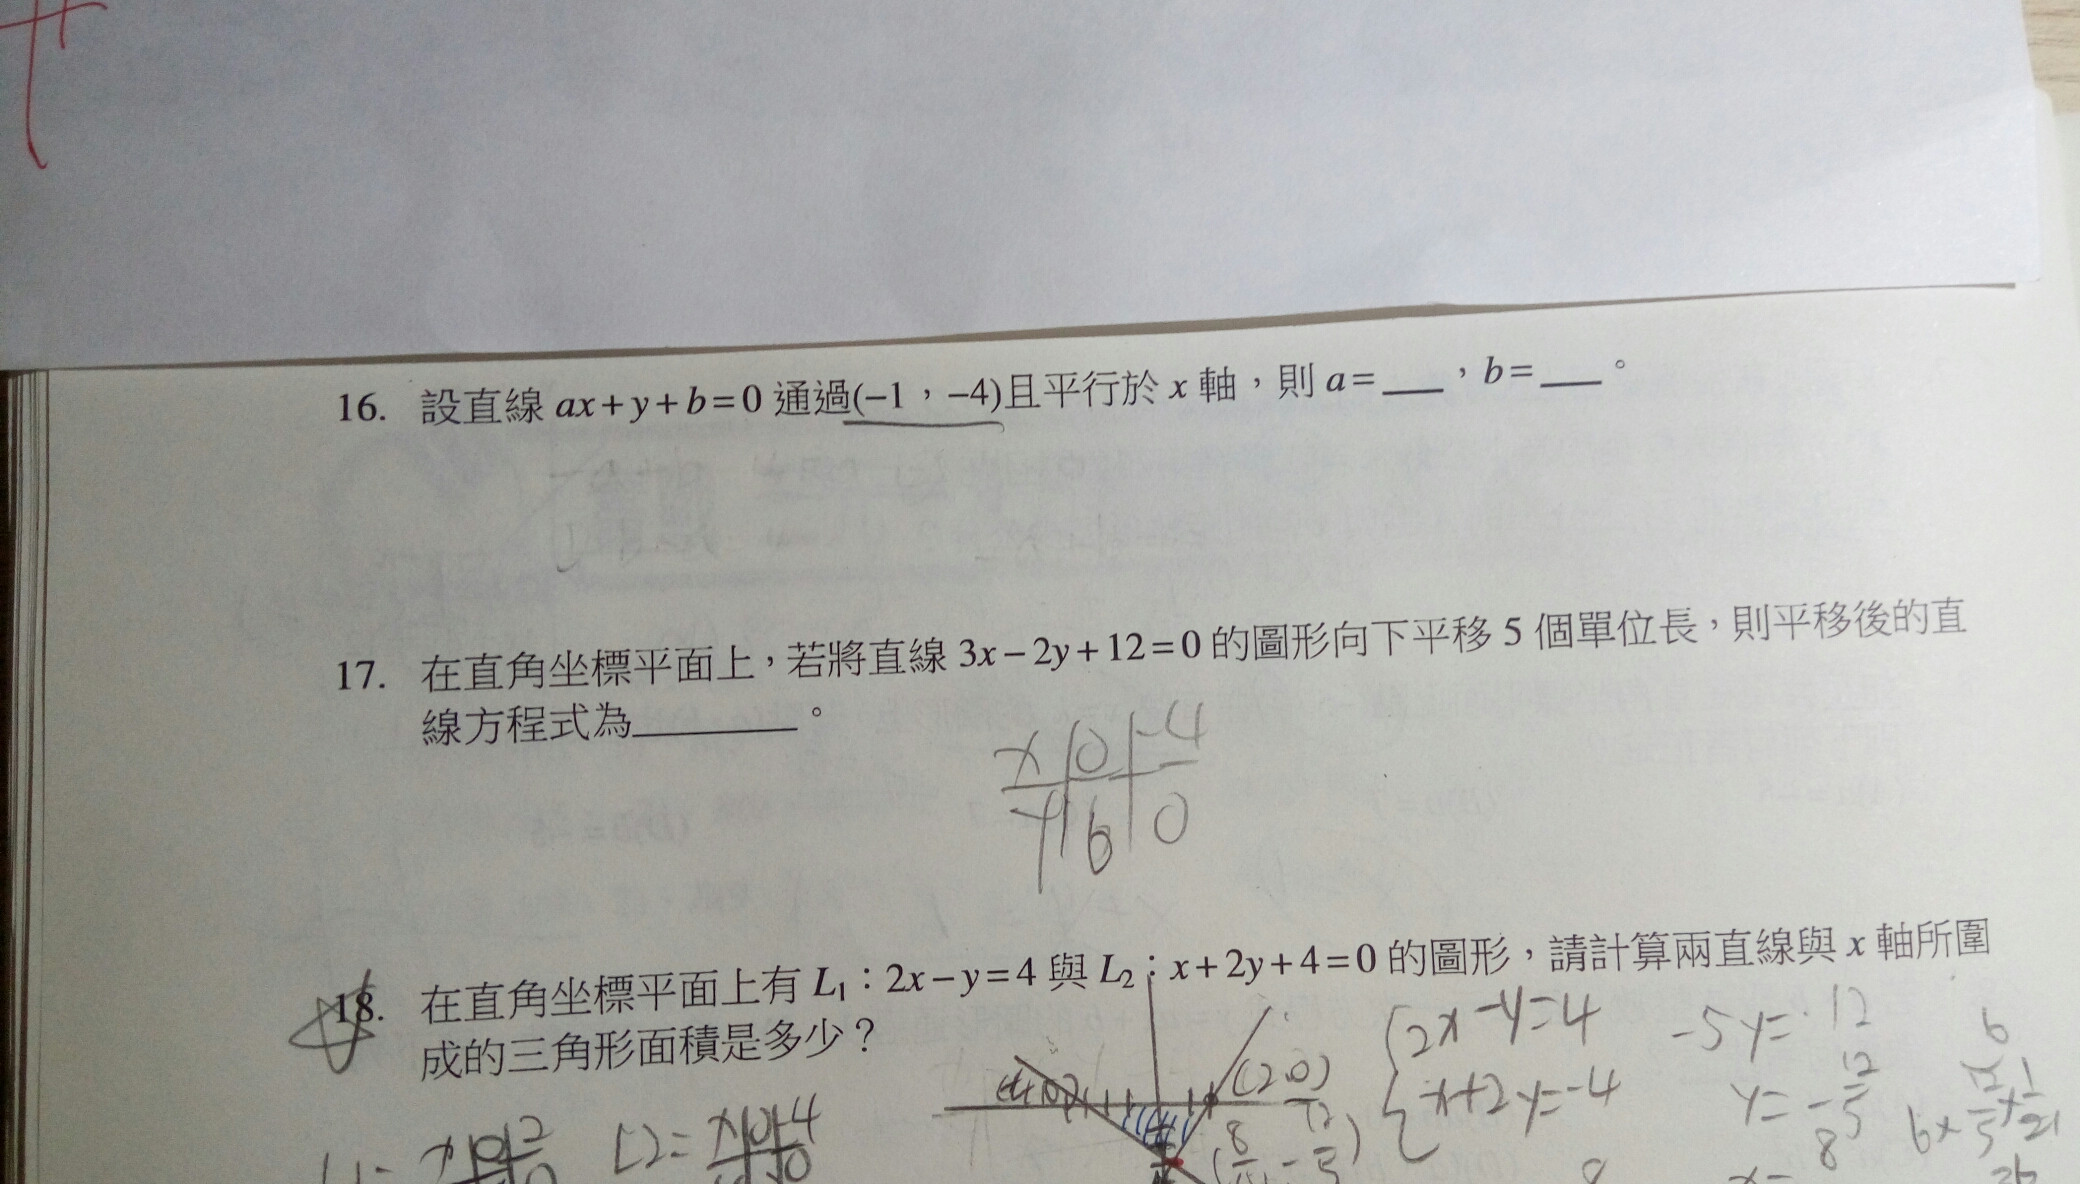 16. 設直線 ax+y+b=0 通過(−1，−4)且平行於 x 軸，則 a=___，b=___。
17. 在直角坐標平面上，若將直線 3x−2y+12=0 的圖形向下平移 5 個單位長，則平移後的直
線方程式為________。
x 0 -4
y 6 0
18. 在直角坐標平面上有 L₁：2x−y=4 與 L₂：x+2y+4=0 的圖形，請計算兩直線與 x 軸所圍
成的三角形面積是多少？
2x-y=4
x+2y=-4
-5y=12
y=-12/5
(2,0)
L2=